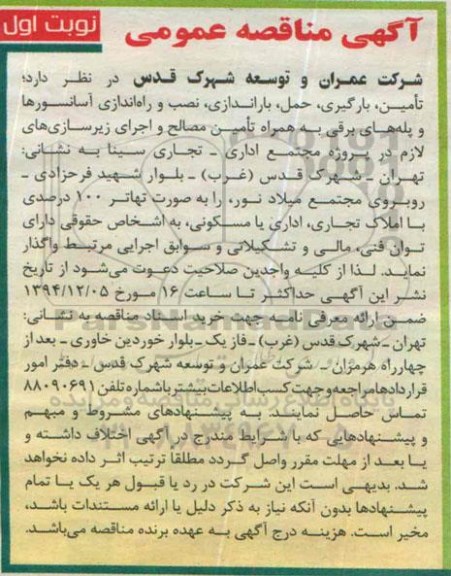 نوبت اول
آگهی مناقصه عمومی
شرکت عمران و توسعه شهرک قدس در نظر دارد؛
تأمین، بارگیری، حمل، باراندازی، نصب و راه‌اندازی آسانسورها
و پله‌های برقی به همراه تأمین مصالح و اجرای زیرسازی‌های
لازم در پروژه مجتمع اداری ـ تجاری سینا به نشانی:
تهران ـ شهرک قدس (غرب) ـ بلوار شهید فرحزادی ـ
روبروی مجتمع میلاد نور، را به صورت تهاتر ۱۰۰ درصدی
با املاک تجاری، اداری یا مسکونی، به اشخاص حقوقی دارای
توان فنی، مالی و تشکیلاتی و سوابق اجرایی مرتبط واگذار
نماید. لذا از کلیه واجدین صلاحیت دعوت می‌شود از تاریخ
نشر این آگهی حداکثر تا ساعت ۱۶ مورخ ۱۳۹۴/۱۲/۰۵
ضمن ارائه معرفی نامه جهت خرید اسناد مناقصه به نشانی:
تهران ـ شهرک قدس (غرب) ـ فاز یک ـ بلوار خوردین خاوری ـ بعد از
چهارراه هرمزان ـ شرکت عمران و توسعه شهرک قدس ـ دفتر امور
قراردادها مراجعه و جهت کسب اطلاعات بیشتر با شماره تلفن ۸۸۰۹۰۶۹۱
تماس حاصل نمایند. به پیشنهادهای مشروط و مبهم
و پیشنهادهایی که با شرایط مندرج در آگهی اختلاف داشته و
یا بعد از مهلت مقرر واصل گردد مطلقا ترتیب اثر داده نخواهد
شد. بدیهی است این شرکت در رد یا قبول هر یک یا تمام
پیشنهادها بدون آنکه نیاز به ذکر دلیل یا ارائه مستندات باشد،
مخیر است. هزینه درج آگهی به عهده برنده مناقصه می‌باشد.